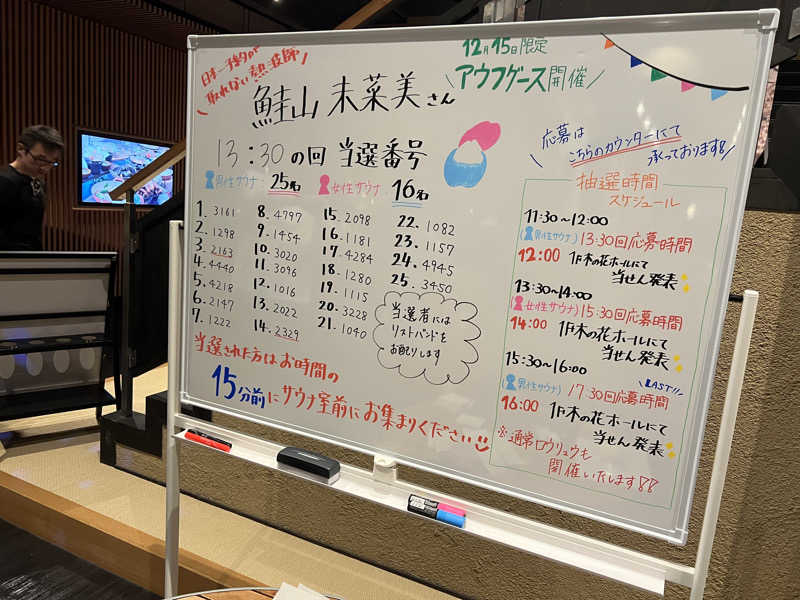 日本一予約が
取れない熱波師
鮭山未菜美さん
12月15日限定
アウフグース開催
13:30の回 当選番号
男性サウナ:25名
女性サウナ:16名
1. 3161
2. 1298
3. 2163
4. 4440
5. 4218
6. 2147
7. 1222
8. 4797
9. 1454
10. 3020
11. 3096
12. 1016
13. 2022
14. 2329
15. 2098
16. 1181
17. 4284
18. 1280
19. 1115
20. 3228
21. 1040
22. 1082
23. 1157
24. 4945
25. 3450
当選者には
リストバンドを
お配りします
当選された方はお時間の
15分前にサウナ室前にお集まりください
応募は
こちらのカウンターにて
承っております!!
抽選時間
スケジュール
11:30~12:00
(男性サウナ)13:30回応募時間
12:00 1F木の花ホールにて
当せん発表
13:30~14:00
(女性サウナ)15:30回応募時間
14:00 1F木の花ホールにて
当せん発表
15:30~16:00
LAST!!
(男性サウナ)17:30回応募時間
16:00 1F木の花ホールにて
当せん発表
※通常ロウリュウも
開催いたします!!